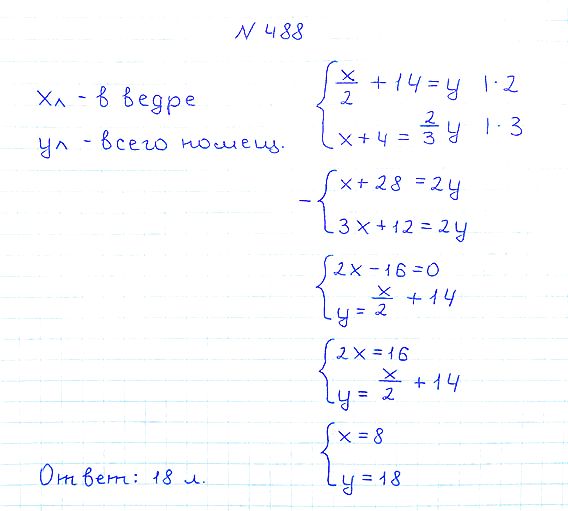 N 488
x л - в ведре
y л - всего помещ.
x/2 + 14 = y | · 2
x + 4 = 2/3 y | · 3
- x + 28 = 2y
3x + 12 = 2y
2x - 16 = 0
y = x/2 + 14
2x = 16
y = x/2 + 14
x = 8
y = 18
Ответ: 18 л.